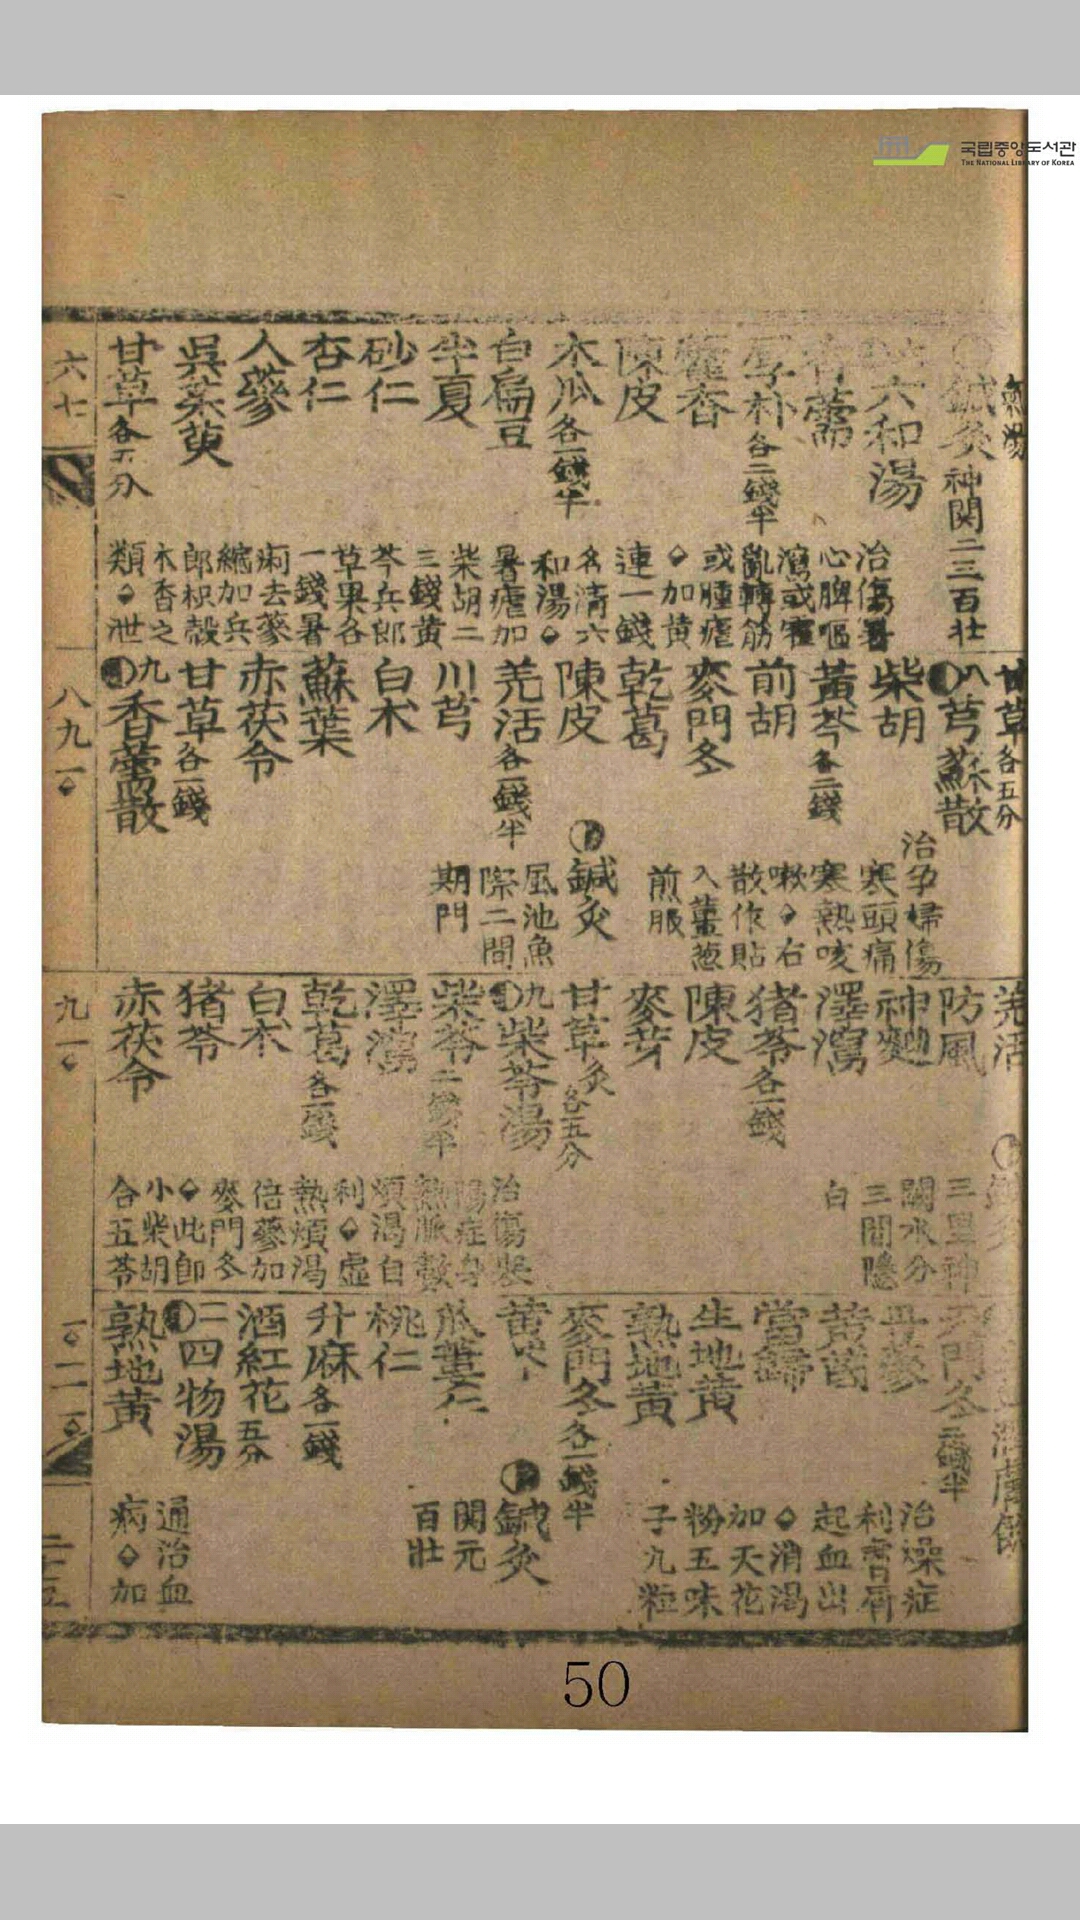 국립중앙도서관
THE NATIONAL LIBRARY OF KOREA
鍼灸 神関二三百壮
六和湯
治傷暑
心脾嘔
瀉或霍
亂轉筋
或腫瘧
◆加黄
連一錢
名清六
和湯◆
暑瘧加
柴胡二
三錢黄
芩兵郎
草果各
一錢暑
痢去蔘
縮加兵
郎枳殻
木香之
類◆泄
香薷
厚朴 各二錢半
藿香
陳皮
木瓜 各一錢半
白扁豆
半夏
砂仁
杏仁
人蔘
吳茱萸
甘草 各五分
六七
甘草 各五分
八芎蘇散
治孕婦傷
寒頭痛
寒熱咳
嗽◆右
散作貼
入薑葱
煎服
柴胡
黃芩 各二錢
前胡
麥門冬
乾葛
陳皮
羌活 各一錢半
川芎
白朮
蘇葉
赤茯令
甘草 各一錢
鍼灸
風池魚
際二間
期門
九香薷散
八九
羌活
防風
神麯
澤瀉
猪苓 各一錢
陳皮
麥芽
甘草灸 各五分
三里神
關水分
三間隱
白
九柴苓湯
治傷寒
陽症身
熱脈數
煩渴自
利◆虛
熱煩渴
倍蔘加
麥門冬
◆此即
小柴胡
合五苓
柴苓 二錢半
澤瀉
乾葛 各一錢
白朮
猪苓
赤茯令
九一
天門冬 二錢半
治燥症
起血出
◆消渴
加天花
粉五味
子九粒
當歸
生地黃
熟地黃
麥門冬 各一錢半
黃芩
瓜蔞仁
桃仁
升麻 各一錢
酒紅花 五分
鍼灸
関元
百壯
二四物湯
通治血
病◆加
熟地黃
50